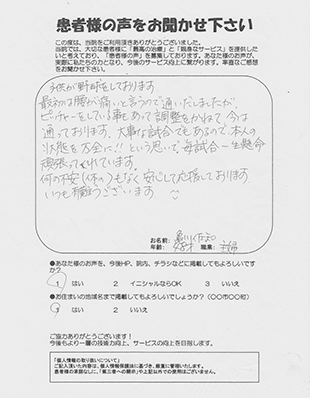 患者様の声をお聞かせ下さい
この度は、当院をご利用頂きありがとうございました。
当院では、大切な患者様に「最高の治療」と「親身なサービス」を提供したい
と考えており、「患者様の声」を募集しております。あなた様のお声が、
実際に私たちの力となり、今後のサービス向上に繋がります。率直なご感想
をお聞かせ下さい。
子供が野球をしております
最初は腰が痛いと言うので通いだしましたが、
ピッチャーをしている事もあって調整をかねて今は
通っております。大事な試合でもあるので、本人の
状態を万全に!!という思いで、毎試合一生懸命
頑張ってくれています。
何の不安(体の)もなく安心して応援しております
いつも有難うございます
お名前:
年齢: 才 職業: 主婦
●あなた様のお声を、今後HP、院内、チラシなどに掲載してもよろしいです
か?
1 はい 2 イニシャルならOK 3 いいえ
●お住まいの地域名まで掲載してもよろしいでしょうか?(○○市○○町)
1 はい 2 いいえ
ご協力ありがとうございます!
今後もより一層の技術力向上、サービスの向上を目指します。
「個人情報の取り扱いについて」
ご記入頂いた内容は、個人情報保護法に基づき、厳重に管理いたします。
患者様の承諾なしに、「第三者への開示」や上記以外での使用はございません。